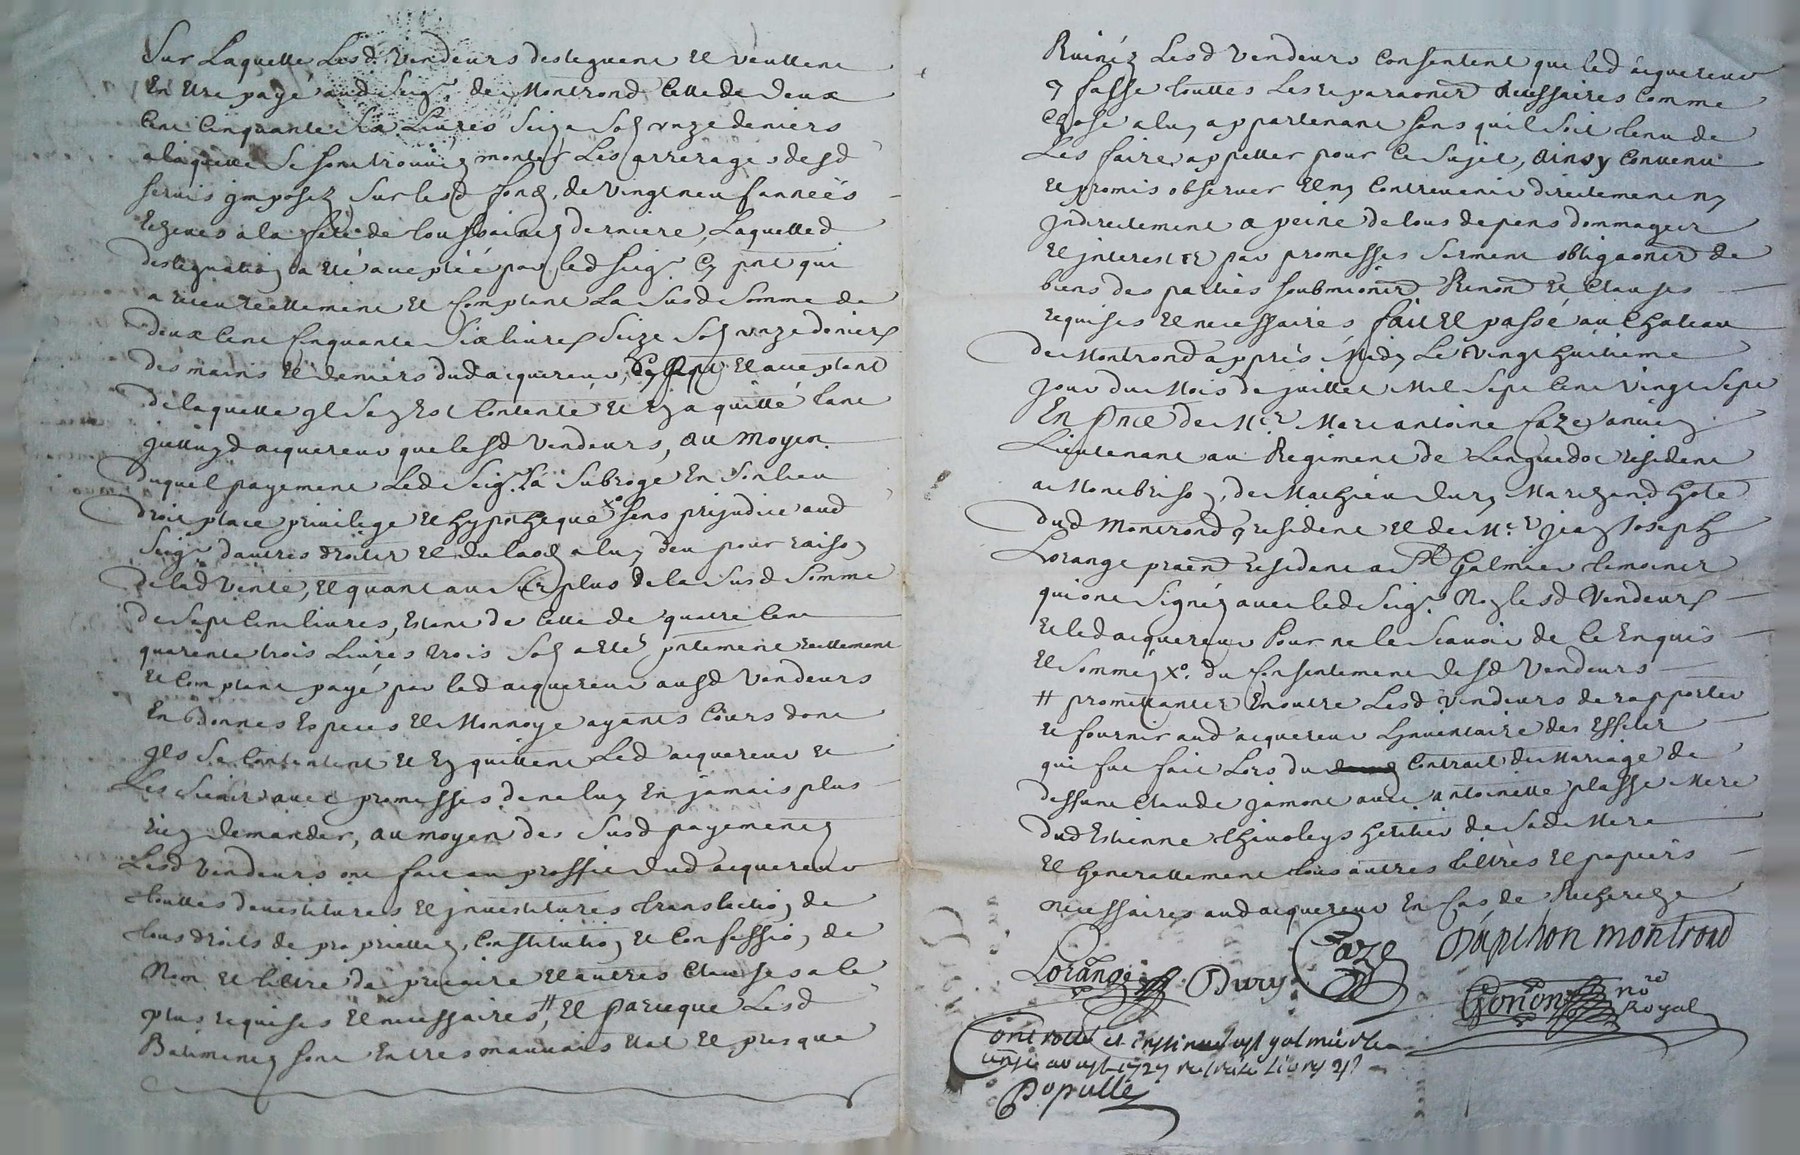 Sur Laquelle Lesd. Vendeurs desleguent Et veullent
En Etre payé aud Seigr. de Montrond Celle de deux
Cent Cinquante six Livres Seize Sols unze deniers
a laquelle Se sont trouvés monter Les arrerages desd
servis jmposez Sur lesd fond, de vingt neuf années
Echeues a la fête de toussaint derniere, Laquelle d
deslegation a eté acceptée par led Seigr. Cy pnt qui
a receu reellement Et Comptant La Susd Somme de
deux Cent Cinquante Six livres Seize Sols unze deniers
des mains Et deniers dud acquereur, Et acceptant
de laquelle jl Sey Est Contenté Et En a quitté tant
jcelluy d acquereur que lesd Vendeurs, au moyen
Duquel payement Led Seigr. La Subrogé En Son lieu
droit place privilege Et hypotheque x° sans prejudice aud
Seigr d'autres droits Et du laod a luy deu pour raison
de lad Vente, Et quant au Surplus de la Susd Somme
de Sept Cent livres, Etant de Celle de quatre Cent
quarente trois Livres trois Sols a Eté pntement reellement
Et Comptant payé par led acquereur ausd Vendeurs
En bonnes Especes Et Monnoye ayants Cours dont
jls Se Contentent Et En quittent Led acquereur Et
Les Siens avec promesses de ne luy En jamais plus
rien demander, au moyen des Susd payements
Lesd Vendeurs ont fait au proffit dud acquereur
touttes devestitures Et jnvestitures translation de
tous droits de proprietté, Constitution Et Confession de
Nom Et tiltre de precaire Et autres Clauses a le
plus requises Et necessaires, # Et parceque Lesd
Batiments sont En tres mauvais Etat Et presque
Ruinéz Lesd Vendeurs Consentent que led acquereur
y fasse touttes Les reparaons necessaires Comme
Chose a luy appartenant sans qu'il Soit tenu de
Les faire appeller pour Ce Sujet, ainsy Convenu
Et promis observer Et ny Contrevenir directement ny
jndirectement a peine de tous depens dommages
Et jnterest Et par promesses Serment obligaons de
biens des parties soubmions Renon Et Clauses
requises Et necessaires fait Et passé au Chateau
de Montrond apprés Midy Le vingt huitieme
jour du Mois de juillet Mil Sept Cent Vingt Sept
En pnce de Mr. Marc antoine Caze
Lieutenant au Regiment de Languedoc resident
a Montbrison, de Mathieu Dury Marchand hote
dud Montrond y resident Et de Mr. Jean Joseph
Lorange praen resident a St Galmier temoins
qui ont Signéz avec led Seigr. Non lesd Vendeurs
Et led acquereur Pour ne le Scavoir de Ce Enquis
Et Sommés x°. du Consentement desd Vendeurs
# promettants En outre Lesd Vendeurs de rapporter
Et fournir aud acquereur L'jnventaire des Effets
qui fut fait Lors du Contrat de Mariage de
deffunt Claude jamont avec antoinette plasse Mere
dud Estienne thivoleys heritier de Sad Mere
Et Generallement tous autres tiltres Et papiers
necessaires aud acquereur En Cas de Recherche
Lorange Dury Caze Dapchon montrond
Gonon nore Royal
Controllé et insinué a st galmier le
unze aoust 1727
Populle